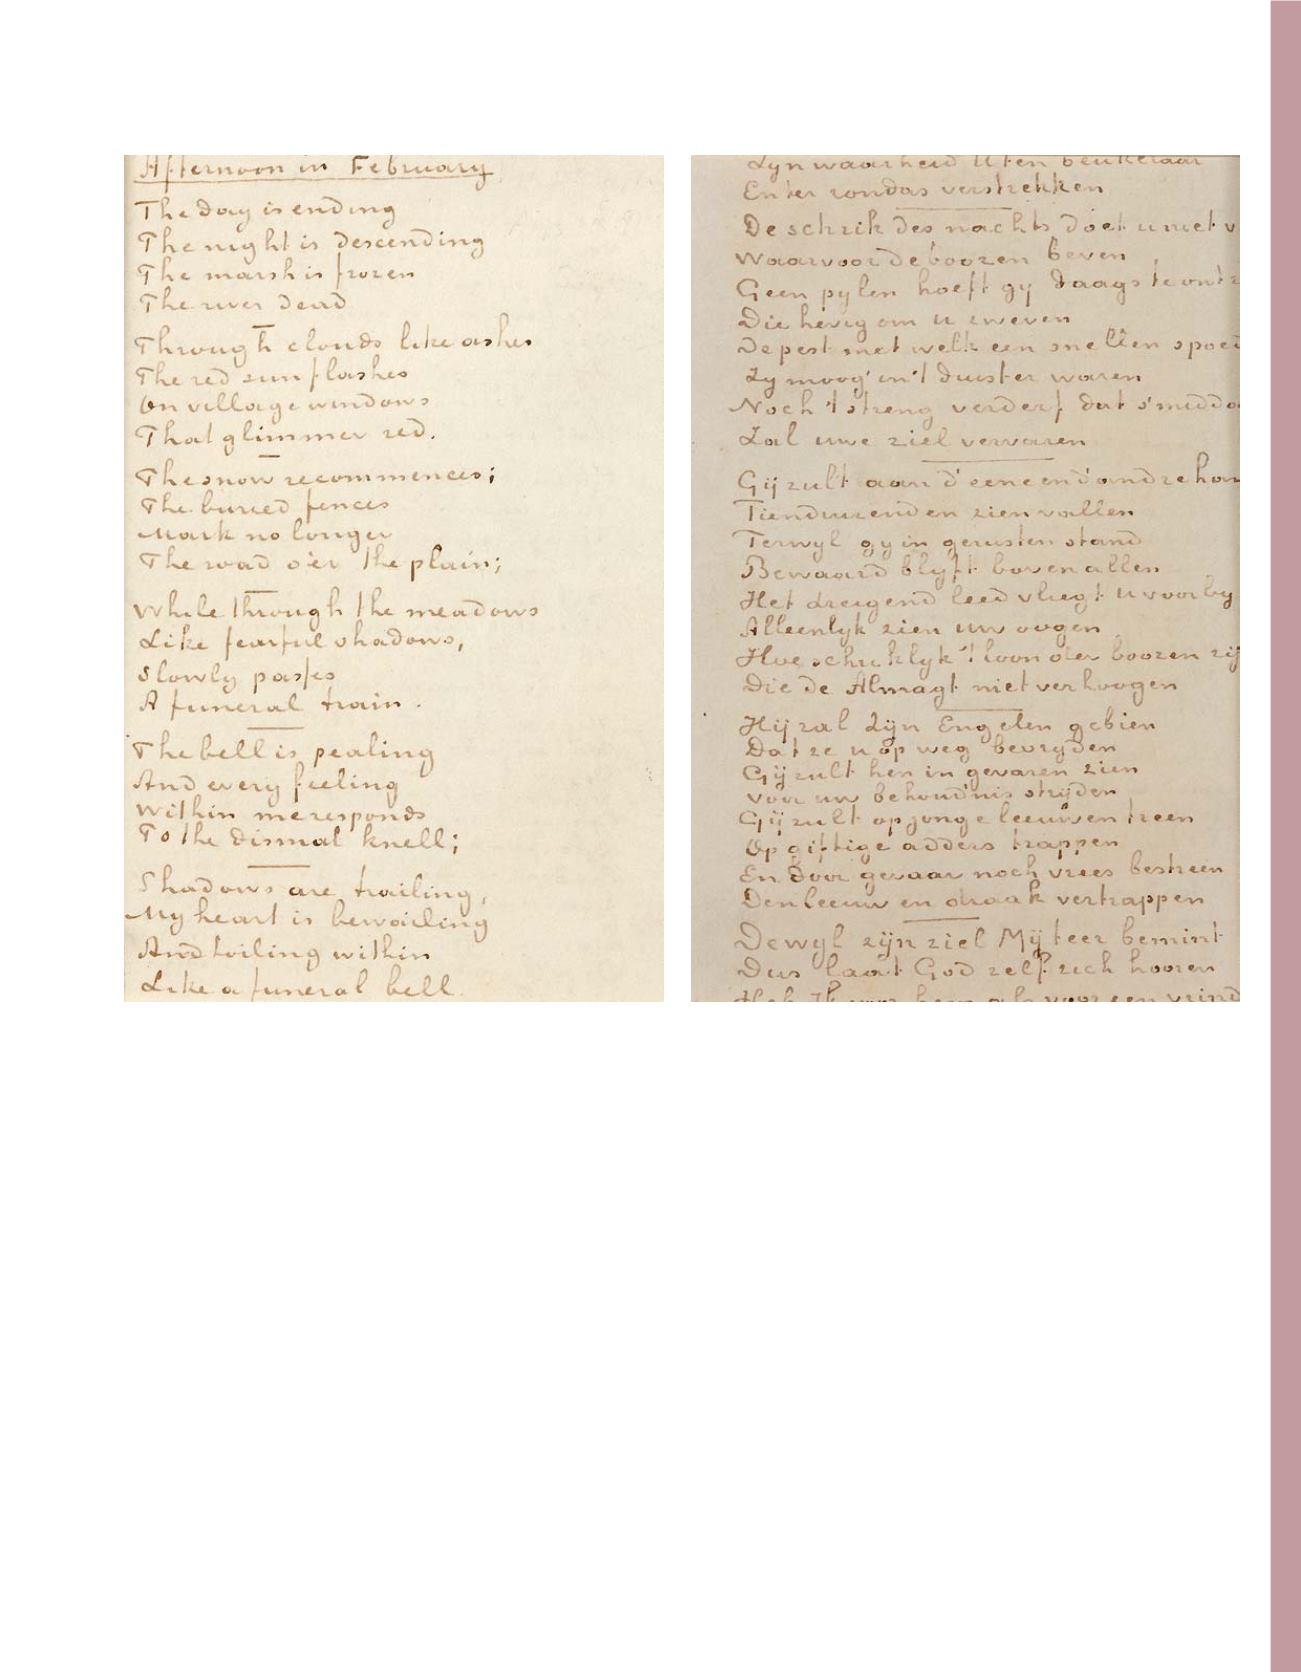 Afternoon in February
The day is ending
The night is descending
The marsh is frozen
The river dead
Through clouds like ashes
The red sun flashes
On village windows
That glimmer red.
The snow recommences;
The buried fences
Mark no longer
The road o'er the plain;
While through the meadows
Like fearful shadows,
Slowly passes
A funeral train.
The bell is pealing
And every feeling
Within me responds
To the dismal knell;
Shadows are trailing,
My heart is bewailing
And toiling within
Like a funeral bell.
Zyn waarheid U ten beukelaar
En ter rondas verstrekken
De schrik des nachts doet u niet
Waarvoor de boozen beven
Geen pylen hoeft gy daags te
Die hevig om u zweven
De pest met welk een snellen
Zy moog' in 't duister waren
Noch 't streng verderf dat
Zal uwe ziel vervaren
Gij zult aan d'eene en d'andre
Tienduizenden zien vallen
Terwyl gy in gerusten stand
Bewaard blyft boven allen
Het dreigend leed vliegt u voorby
Alleenlyk zien uw oogen
Hoe schriklyk 't loon der boozen zij
Die de Almagt niet verhoogen
Hij zal Zijn Engelen gebien
Dat ze u op weg bevryden
Gij zult hen in gevaren zien
Voor uw behoudnis strijden
Gij zult op jonge leeuwen treen
Op giftige adders trappen
En door gevaar noch vrees bestreen
Den leeuw en draak vertrappen
Dewyl zijn ziel Mij teer bemint
Dus laat God zelf zich hooren